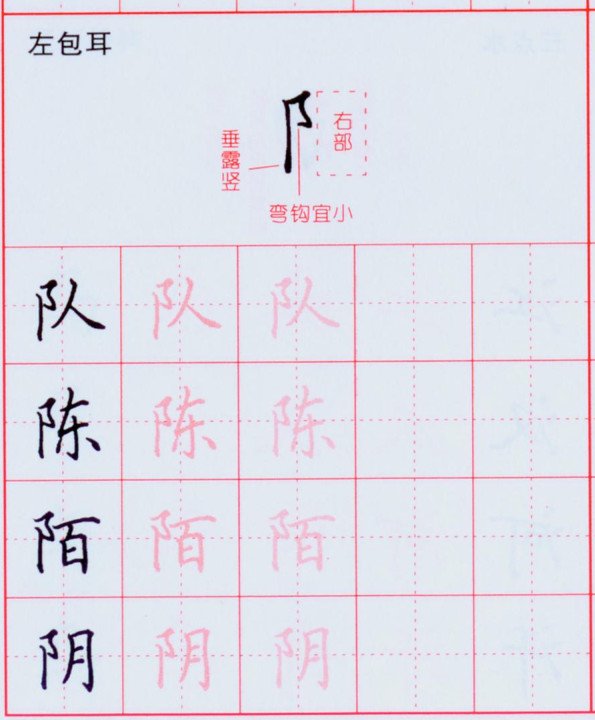 左包耳
阝
右部
垂露竖
弯钩宜小
队 队 队
陈 陈 陈
陌 陌 陌
阴 阴 阴